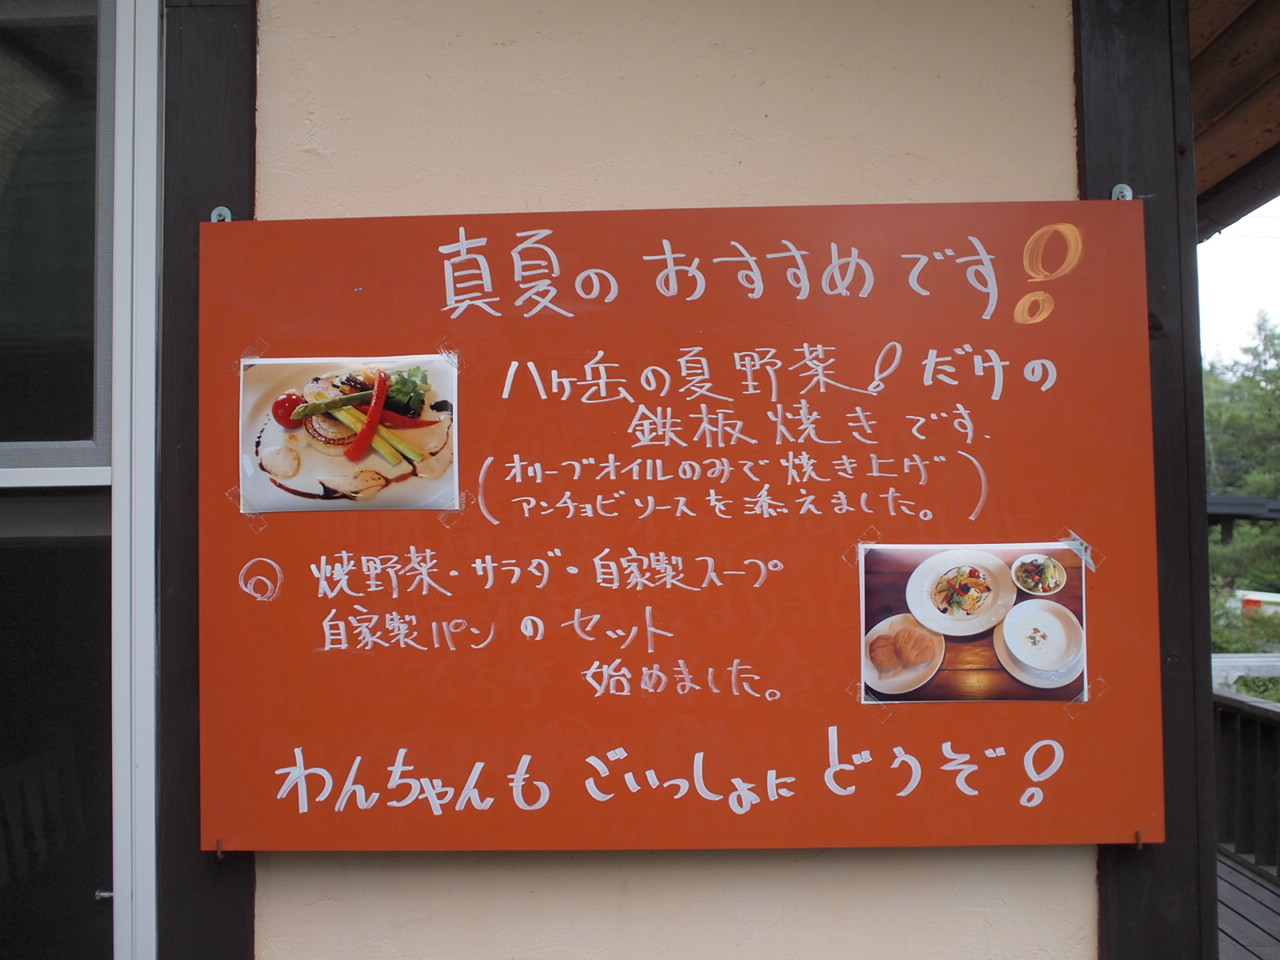 真夏の おすすめです!
八ヶ岳の夏野菜!だけの
鉄板焼きです.
(オリーブオイルのみで焼き上げ
アンチョビソースを添えました。)
◎ 焼野菜・サラダ・自家製スープ
自家製パンのセット
始めました。
わんちゃんも ごいっしょに どうぞ!